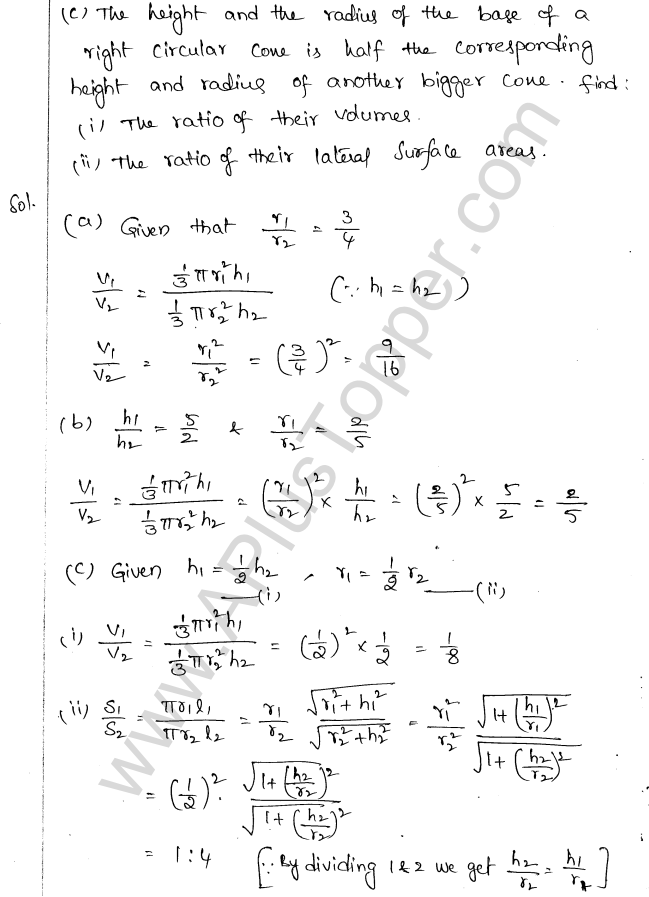 (c) The height and the radius of the base of a
right circular cone is half the corresponding
height and radius of another bigger cone. find:
(i) The ratio of their volumes.
(ii) The ratio of their lateral surface areas.
Sol.
(a) Given that r₁/r₂ = 3/4
V₁/V₂ = (1/3 πr₁²h₁)/(1/3 πr₂²h₂) (∵ h₁ = h₂)
V₁/V₂ = r₁²/r₂² = (3/4)² = 9/16
(b) h₁/h₂ = 5/2 & r₁/r₂ = 2/5
V₁/V₂ = (1/3 πr₁²h₁)/(1/3 πr₂²h₂) = (r₁/r₂)² × h₁/h₂ = (2/5)² × 5/2 = 2/5
(c) Given h₁ = 1/2 h₂ —(i) , r₁ = 1/2 r₂ —(ii)
(i) V₁/V₂ = (1/3 πr₁²h₁)/(1/3 πr₂²h₂) = (1/2)² × 1/2 = 1/8
(ii) S₁/S₂ = πr₁l₁/πr₂l₂ = r₁/r₂ √(r₁²+h₁²)/√(r₂²+h₂²) = r₁²/r₂² √(1+(h₁/r₁)²)/√(1+(h₂/r₂)²)
= (1/2)² . √(1+(h₂/r₂)²)/√(1+(h₂/r₂)²)
= 1:4 [∵ By dividing 1 & 2 we get h₂/r₂ = h₁/r₁]
www.APlusTopper.com